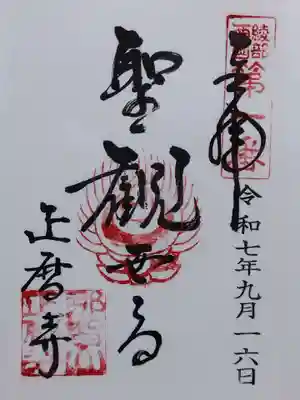 奉拝
綾部西国
第一番
令和七年九月一六日
聖観世音
正暦寺